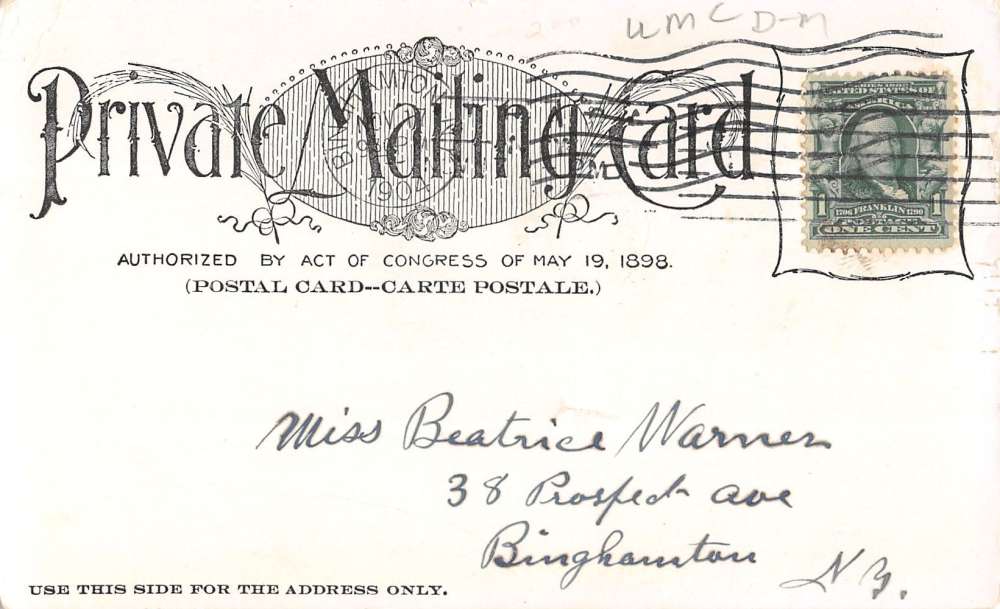 UMC D-M
Private Mailing Card
BINGHAMTON
NOV
1904
SERIES 1902
UNITED STATES OF
AMERICA
1 1706 FRANKLIN 1790 1
POSTAGE
ONE CENT
AUTHORIZED BY ACT OF CONGRESS OF MAY 19, 1898.
(POSTAL CARD--CARTE POSTALE.)
Miss Beatrice Warner
38 Prospect ave
Binghamton
N Y.
USE THIS SIDE FOR THE ADDRESS ONLY.